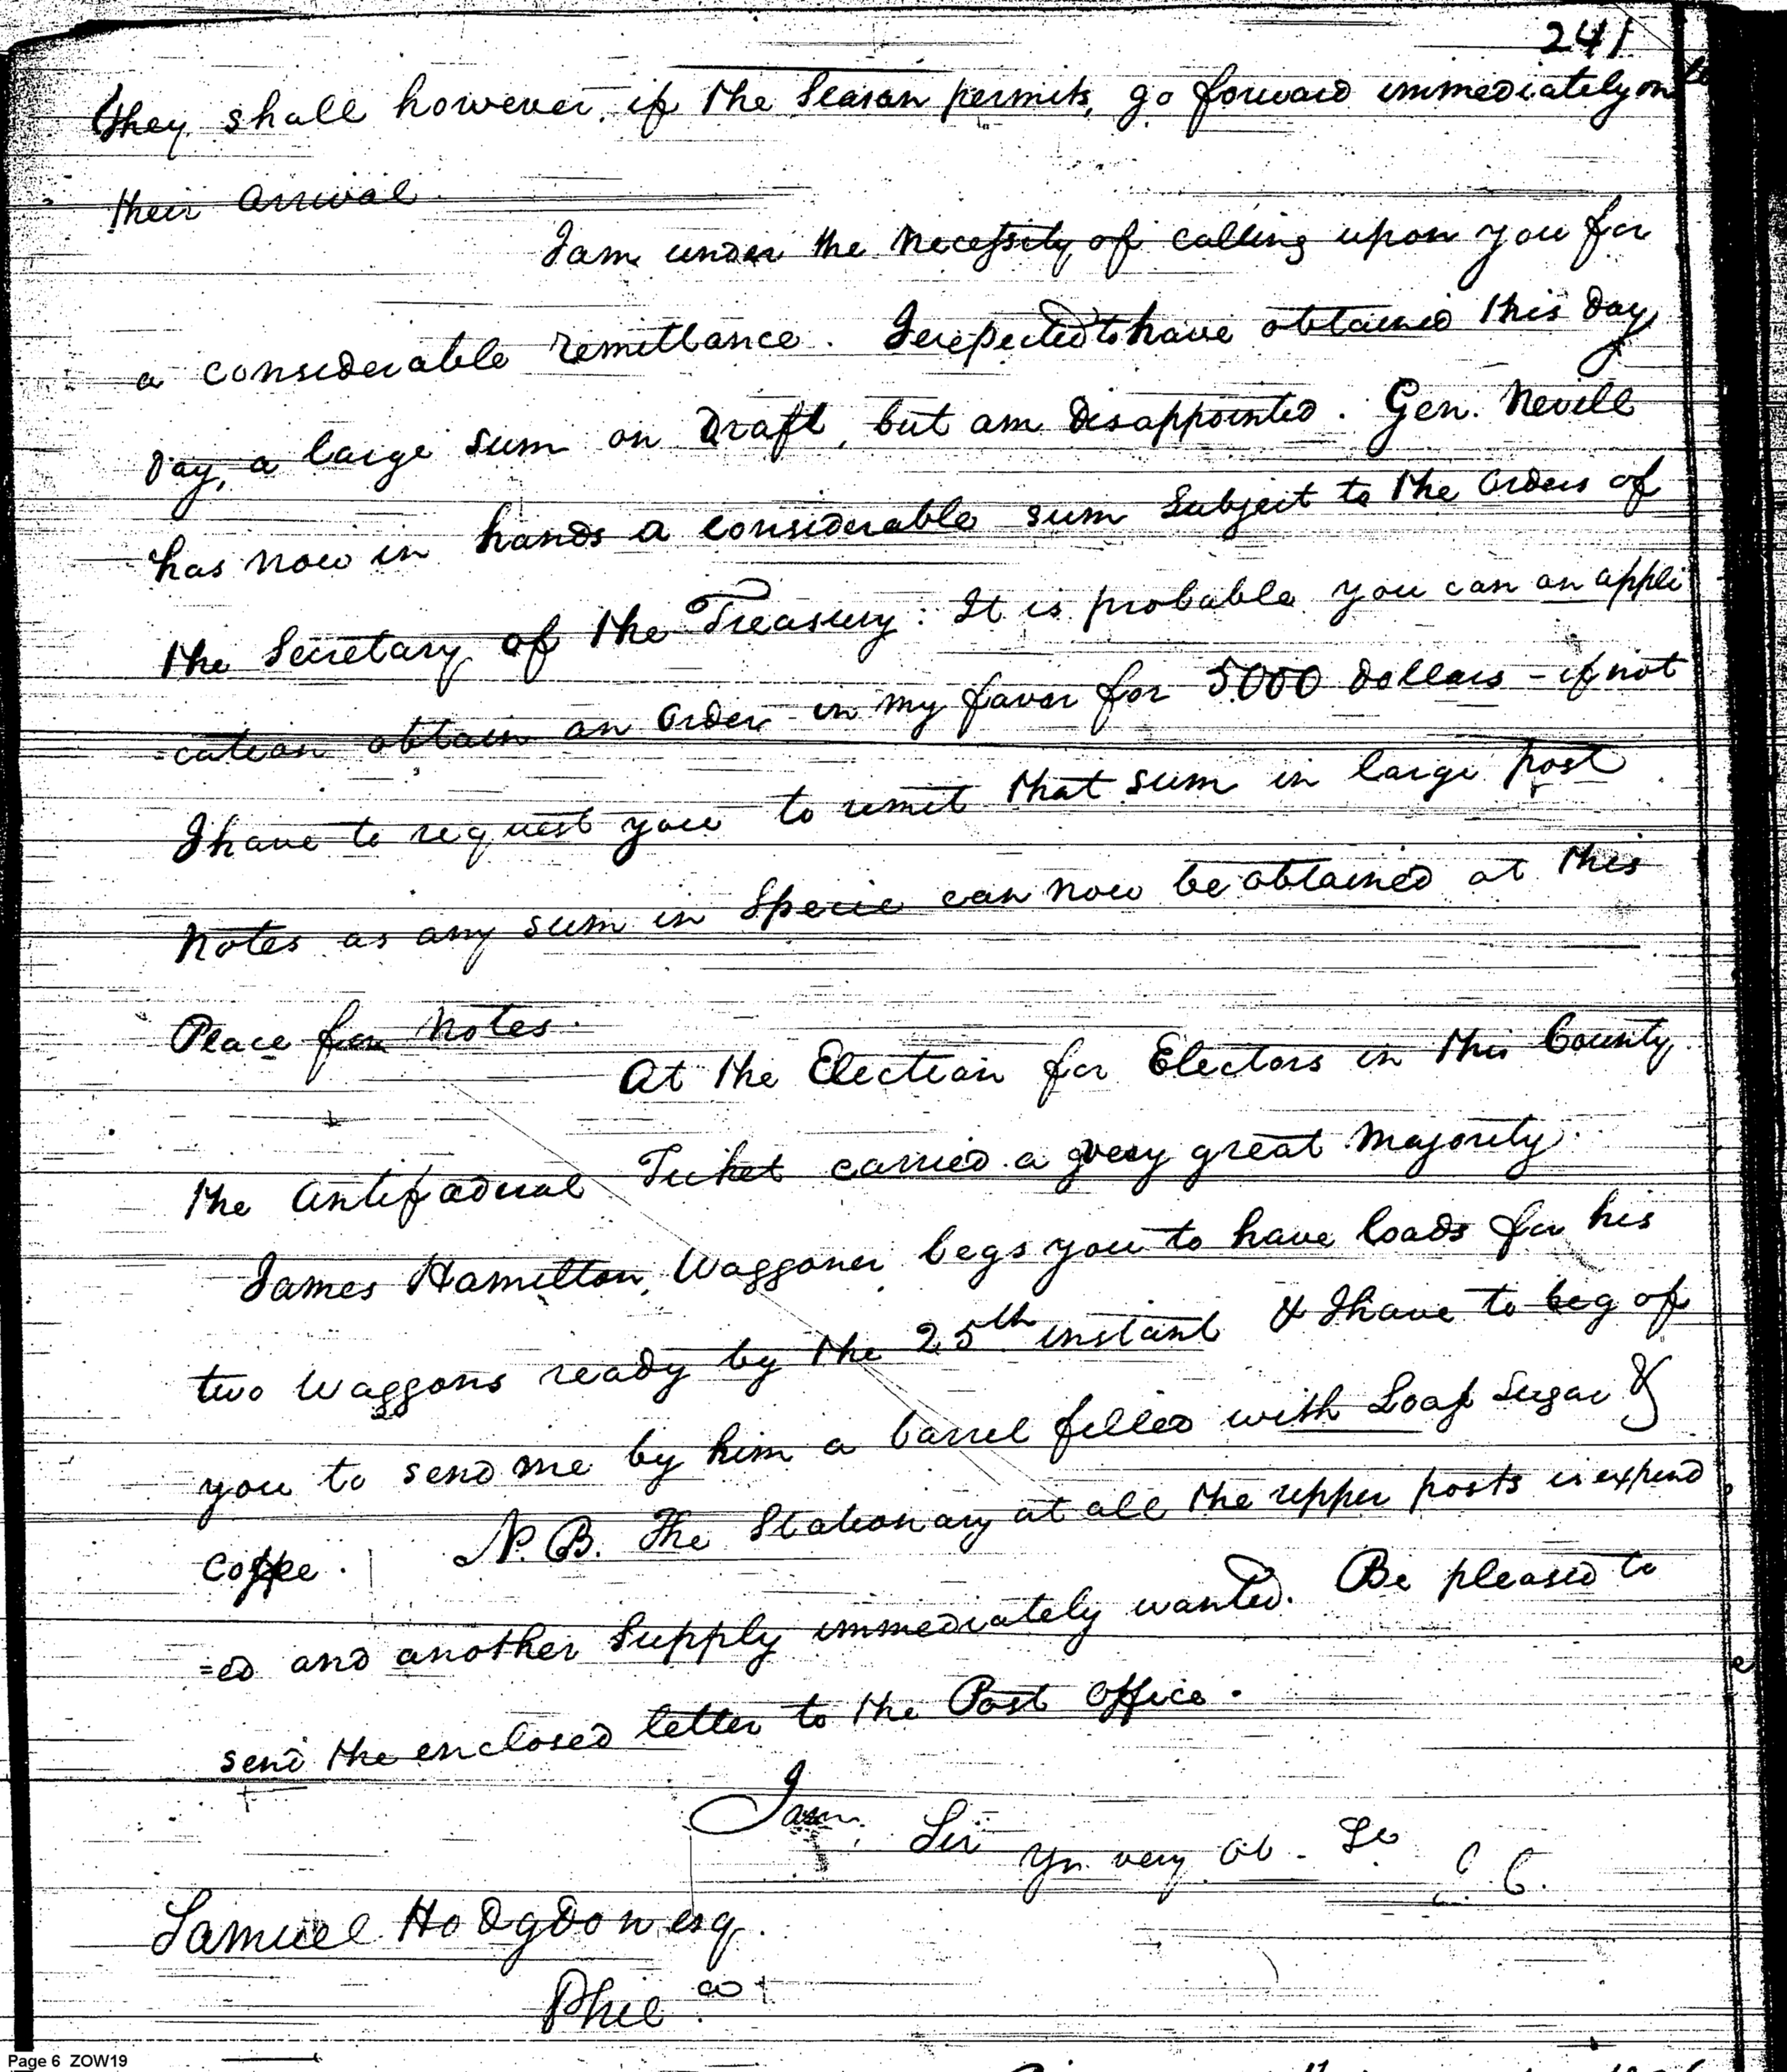 241
they shall however, if the Season permits, go forward immediately on
their arrival.
I am under the necessity of calling upon you for
a considerable remittance. I expected to have obtained this day
day, a large sum on Draft, but am disappointed. Gen. Nevill
has now in hands a considerable sum Subject to the orders of
the Secretary of the Treasury: It is probable you can on appli
-cation obtain an order in my favor for 5000 dollars - if not
I have to request you to remit that sum in large post
Notes as any sum in Specie can now be obtained at this
Place for Notes.
At the Election for Electors in this County
the antifaderal Ticket carried a very great Majority.
James Hamilton, Waggoner begs you to have loads for his
two Waggons ready by the 25th instant & I have to beg of
you to send me by him a barrel filled with Loaf Sugar &
Coffee. N.B. The Stationary at all the upper posts is expend
=ed and another Supply immediately wanted. Be pleased to
send the enclosed letter to the Post Office.
I am, Sir
Yr. very Ob. Se
Samuel Hodgdon esq.
Phil a
Page 6 ZOW19